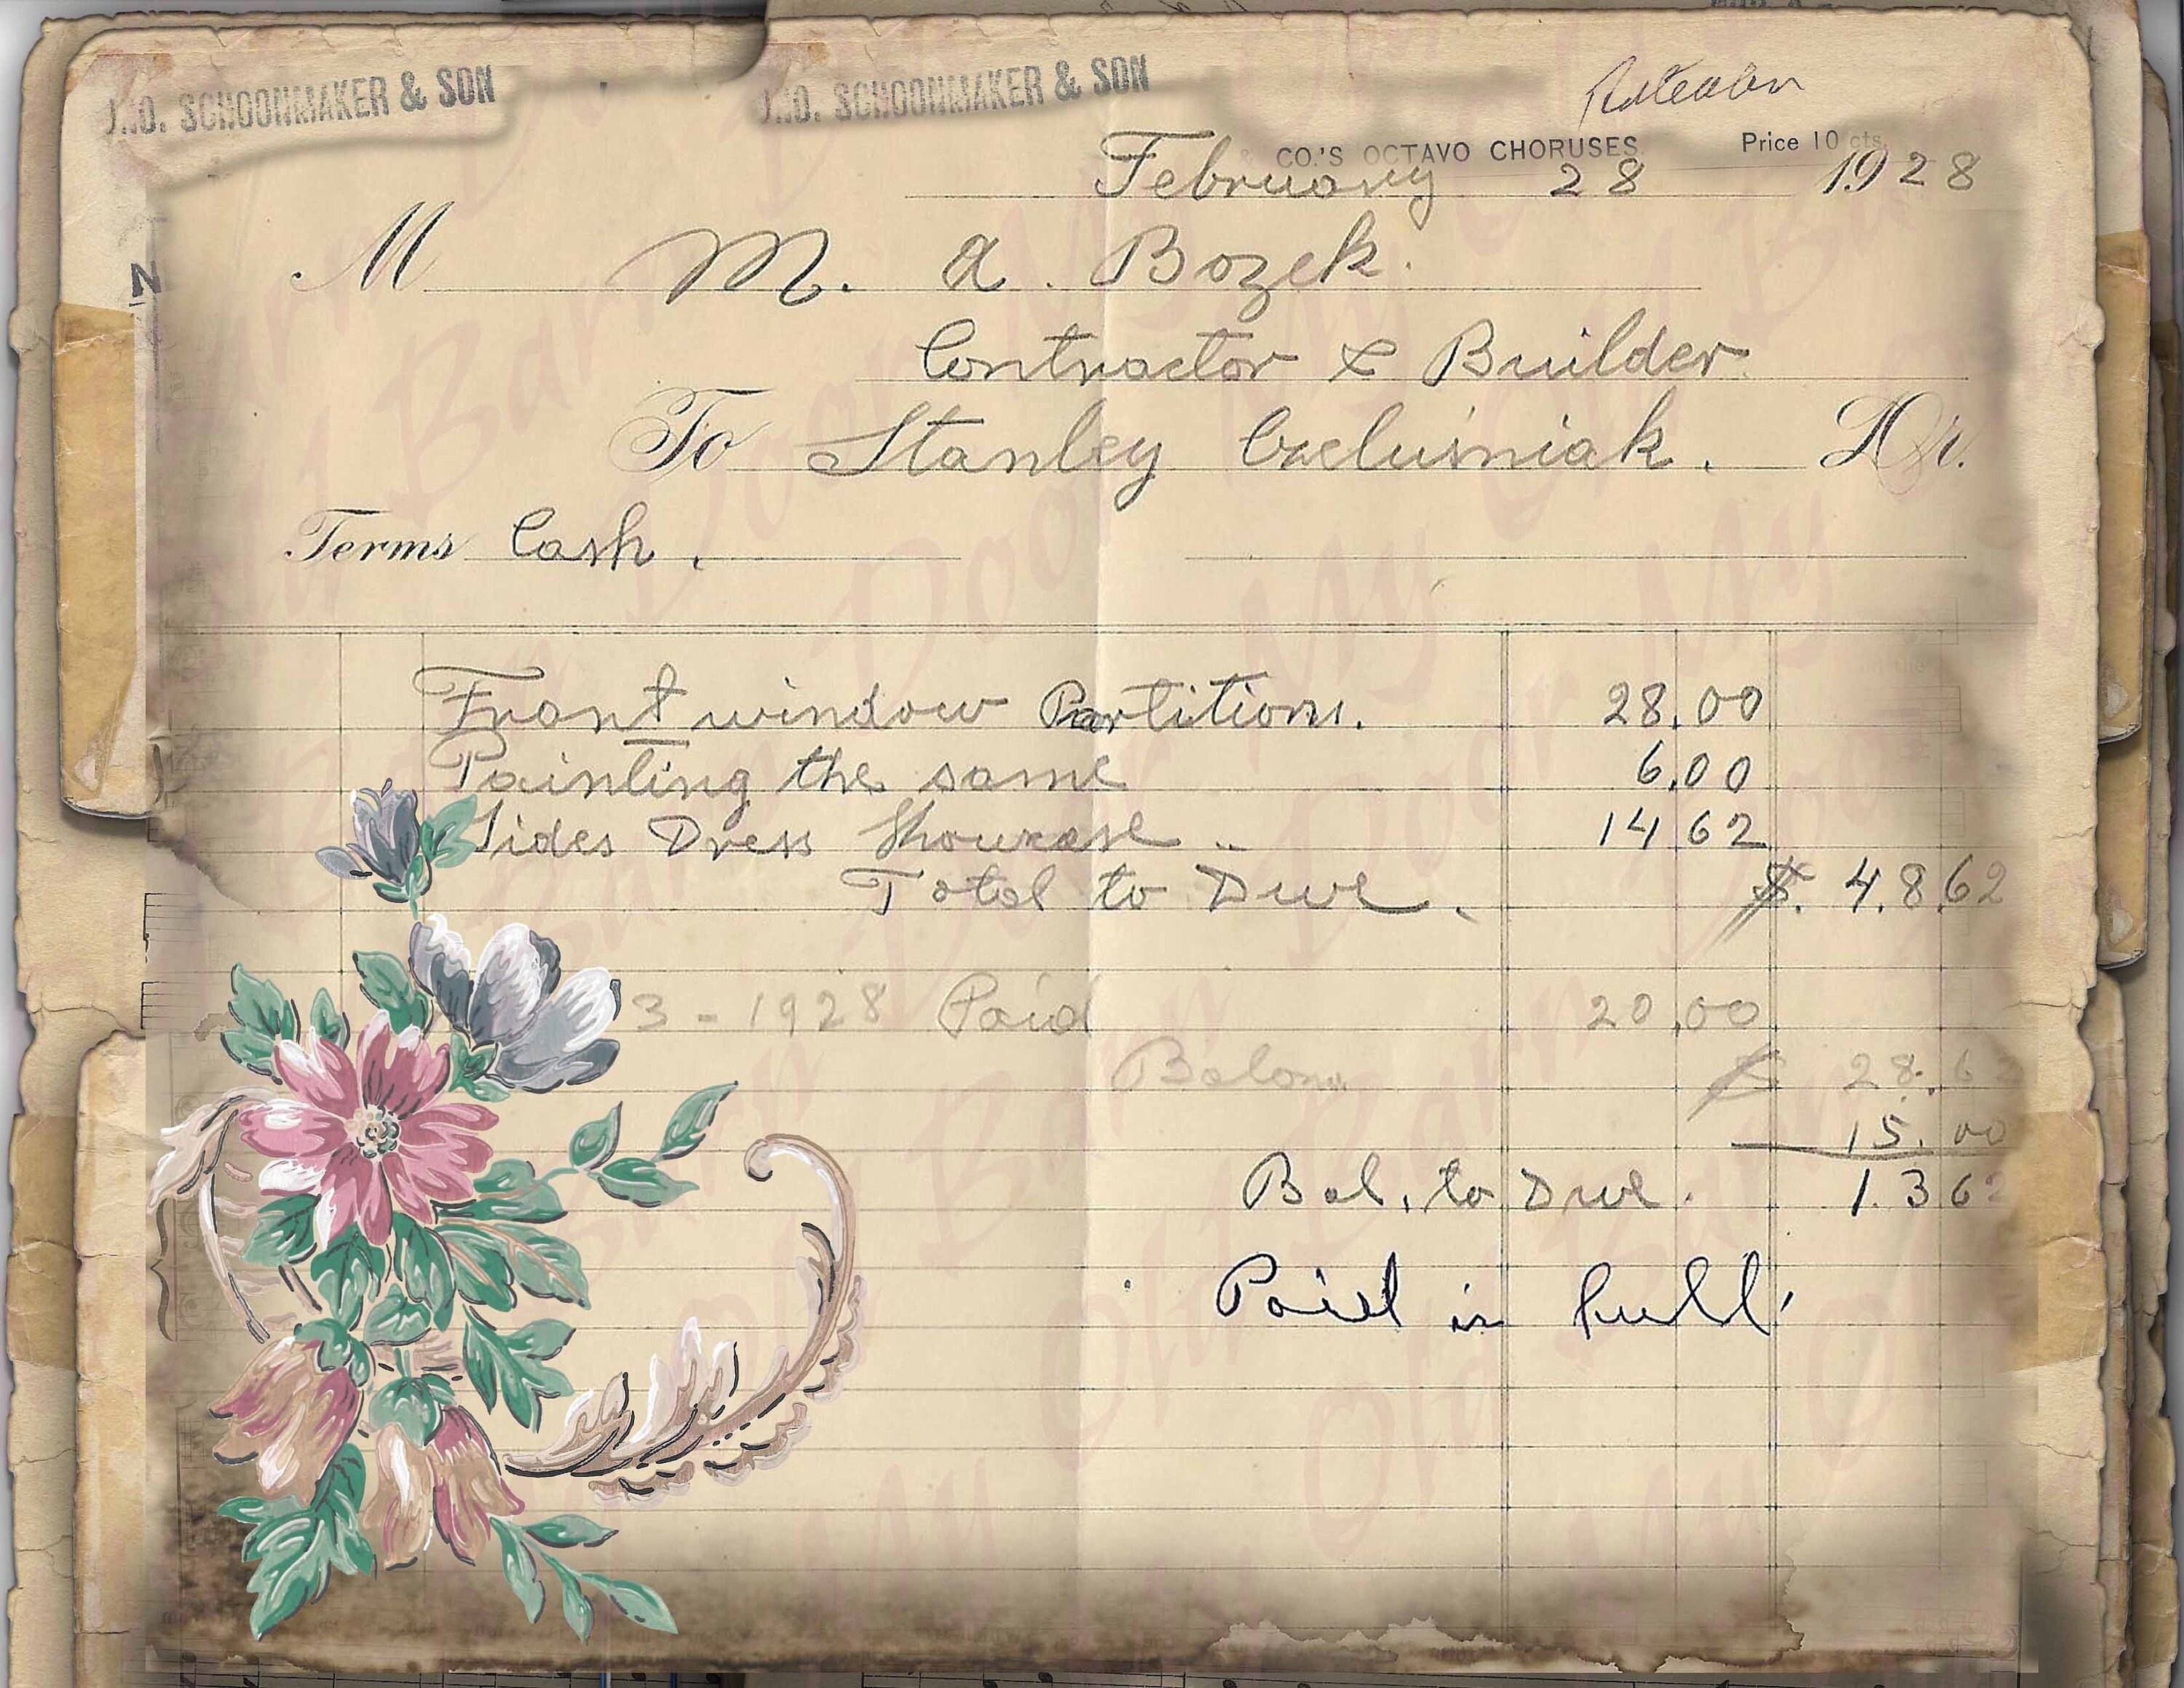 JNO. SCHOONMAKER & SON
JNO. SCHOONMAKER & SON
CO.'S OCTAVO CHORUSES. Price 10 cts.
February 28 1928
N
M M. A. Bozek.
Contractor & Builder
To Stanley Dr.
Terms Cash.
Front window Partitions. 28.00
Painting the same 6.00
Sides Dress Showcase " 14 62
Total to Due. $. 4.8.62
3 - 1928 Paid 20.00
$ 28.6
15.00
Bal. to Due. 1.362
Paid in full.
My Old Barn Door